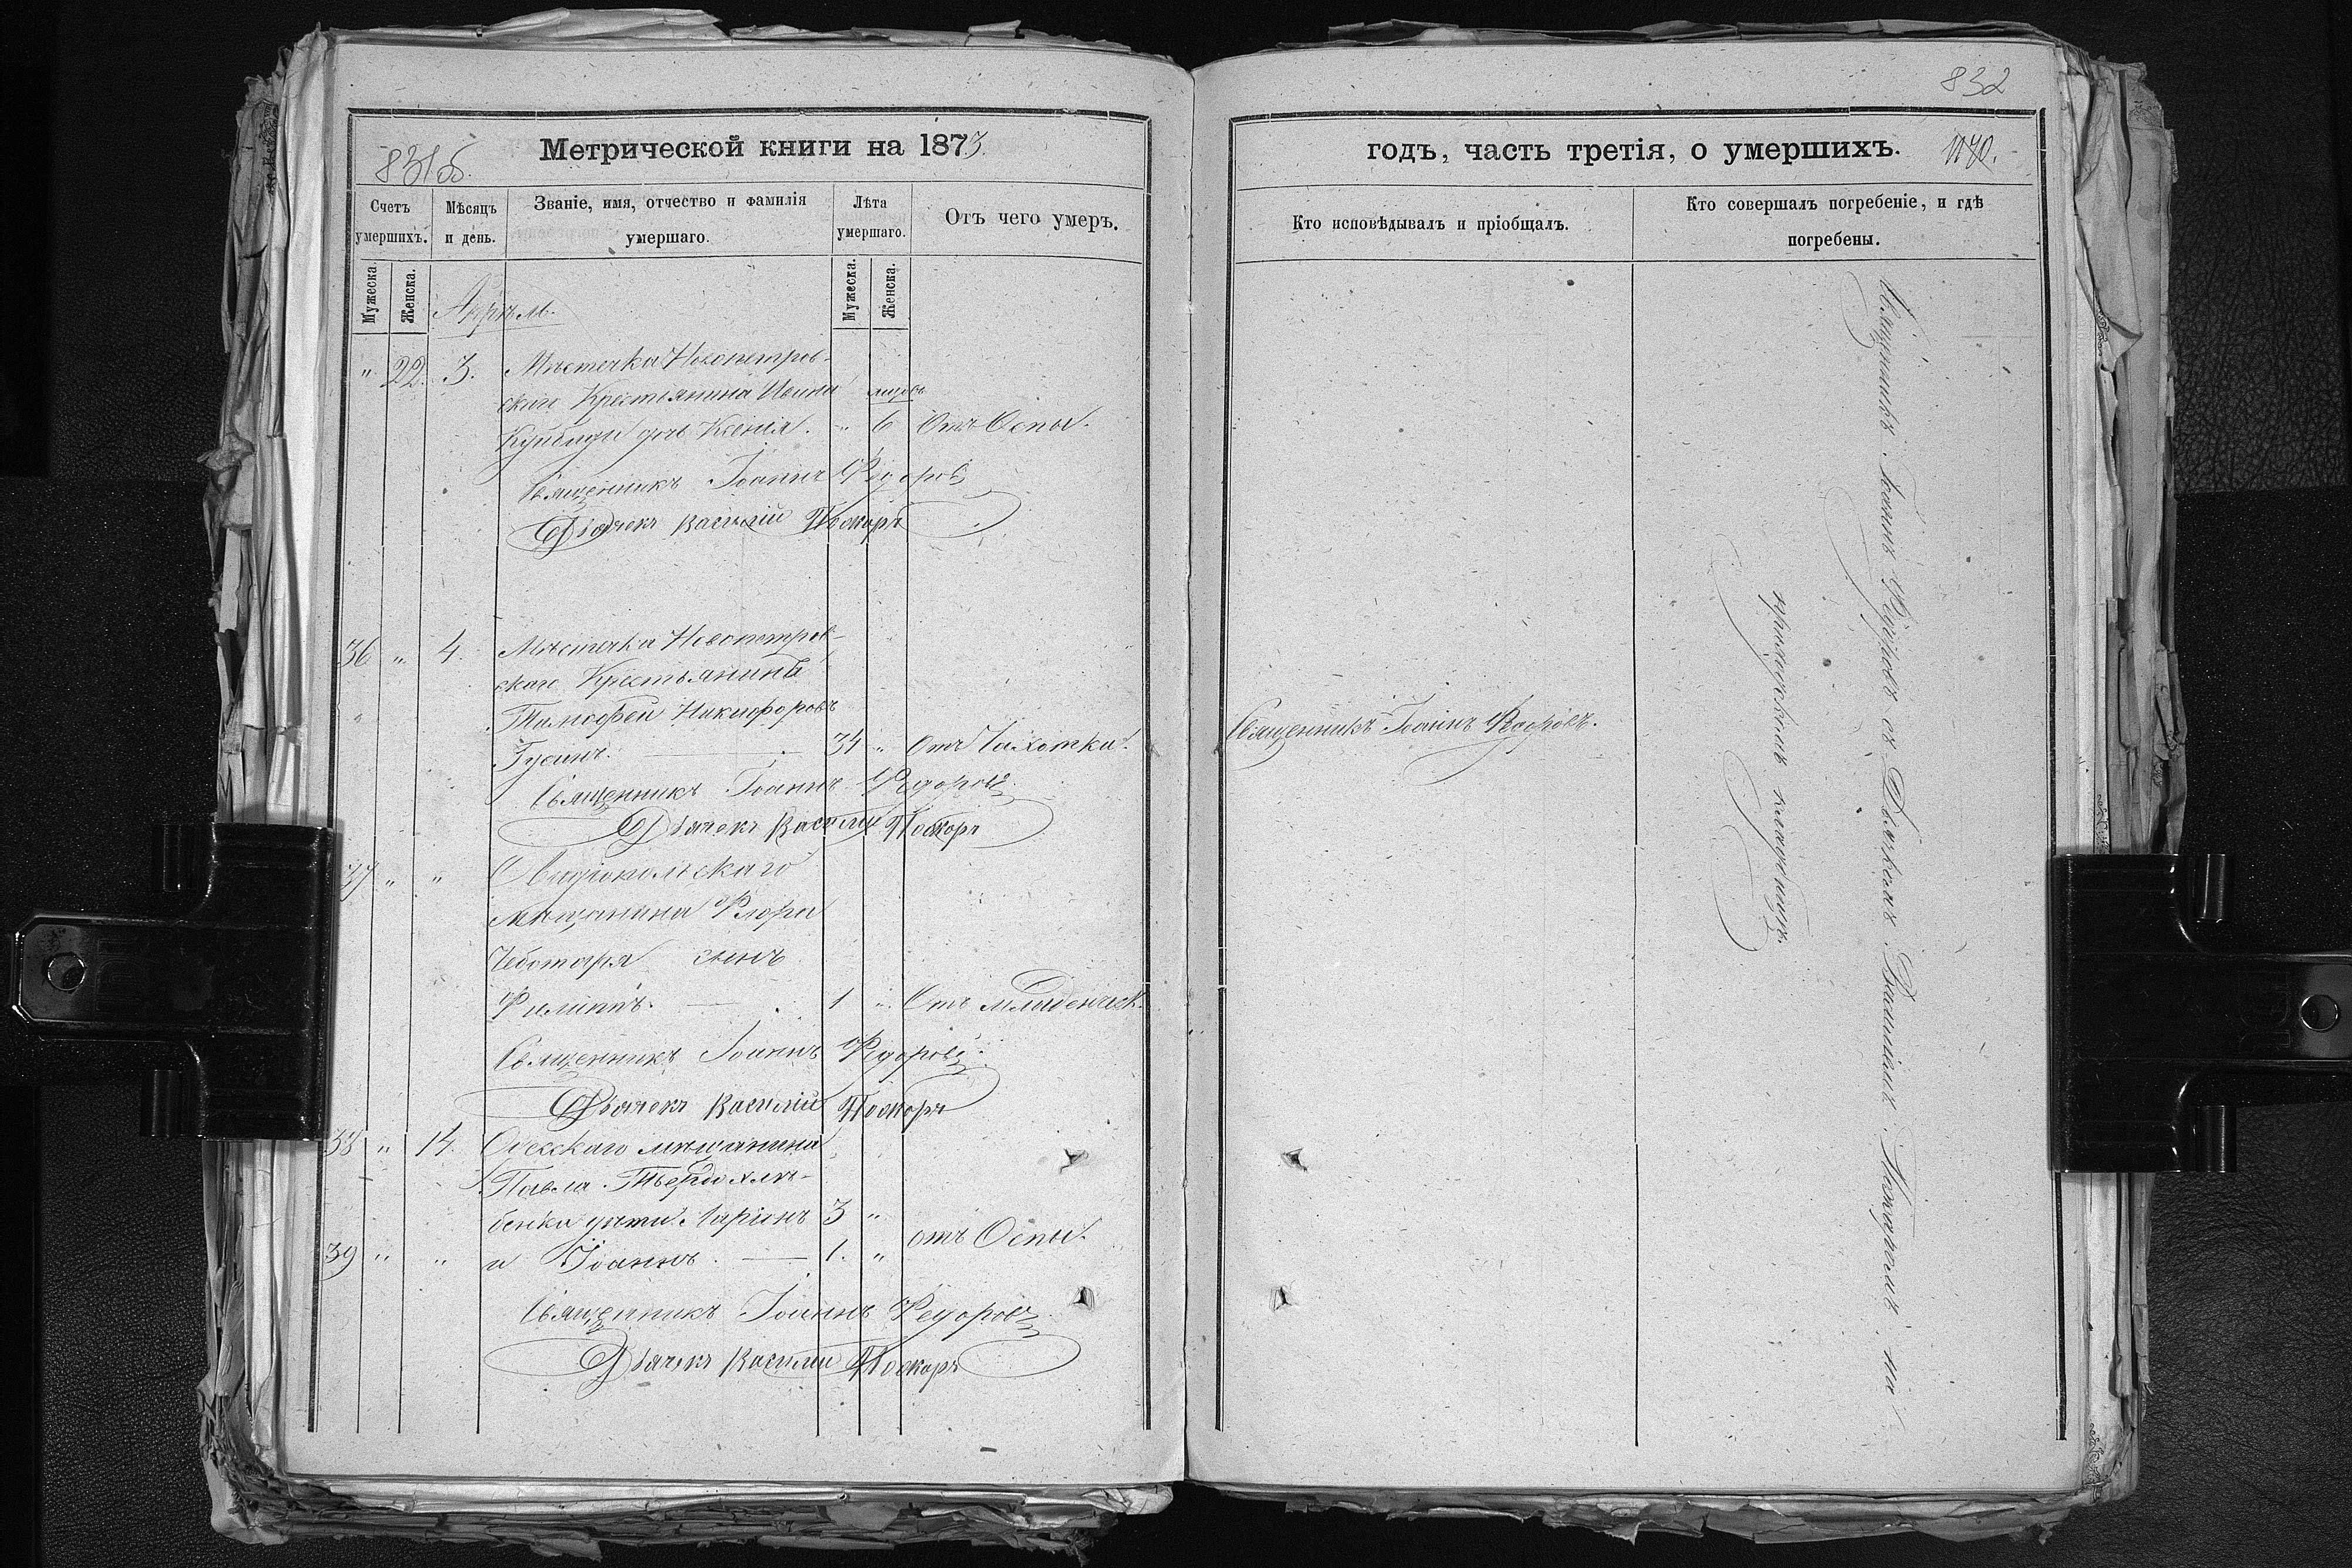 831об.
Метрической книги на 1873.
Счетъ умершихъ.
Мѣсяцъ и день.
Званіе, имя, отчество и фамилія умершаго.
Лѣта умершаго.
Отъ чего умеръ.
Мужеска.
Женска.
Мужеска.
Женска.
Апрѣль.
" 22. 3. Мѣстечка Новопетров-
скаго Крестьянина
дчь Ксенія. " 6 Отъ Оспы.
Священникъ Іоаннъ Федоровъ
Дьячекъ Василій
36 " 4. Мѣстечка Новопетров-
скаго Крестьянинъ
Тимофей Никифоровъ
Гусинъ. 34 " Отъ Чахотки.
Священникъ Іоаннъ Федоровъ
Дьячекъ Василій
37 " " Овидіопольскаго
мѣщанина Флора
Чеботаря сынъ
Филиппъ. 1 " Отъ младенческ.
Священникъ Іоаннъ Федоровъ
Дьячекъ Василій
38 " 14. Одесскаго мѣщанина
Павла Твердохлѣ-
бенка дѣти Ларіонъ 3 "
39 " " и Іоаннъ. 1. " отъ Оспы.
Священникъ Іоаннъ Федоровъ
Дьячекъ Василій
832
годъ, часть третія, о умершихъ.
Кто исповѣдывалъ и пріобщалъ.
Кто совершалъ погребеніе, и гдѣ погребены.
Священникъ Іоаннъ Федоровъ.
Священникъ Іоаннъ Федоровъ съ Дьячкомъ Василіемъ на
приходскомъ кладбищѣ.